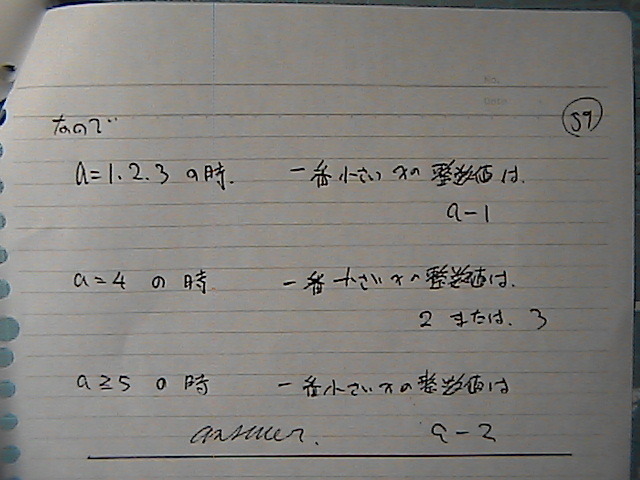 No.
Date
59
なので
a=1.2.3 の時. 一番小さい xの 整数値は.
a-1
a=4 の 時 一番小さい xの整数値は.
2 または. 3
a≥5 の 時 一番小さい xの整数値は
answer. a-2